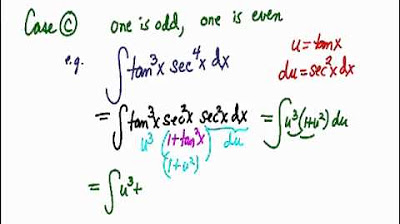 Case ⓒ one is odd, one is even
e.g. ∫ tan³x sec⁴x dx
u = tanx
du = sec²x dx
= ∫ tan³x sec²x sec²x dx = ∫ u³ (1+u²) du
u³ (1+tan²x) du
(1+u²)
= ∫ u³ +